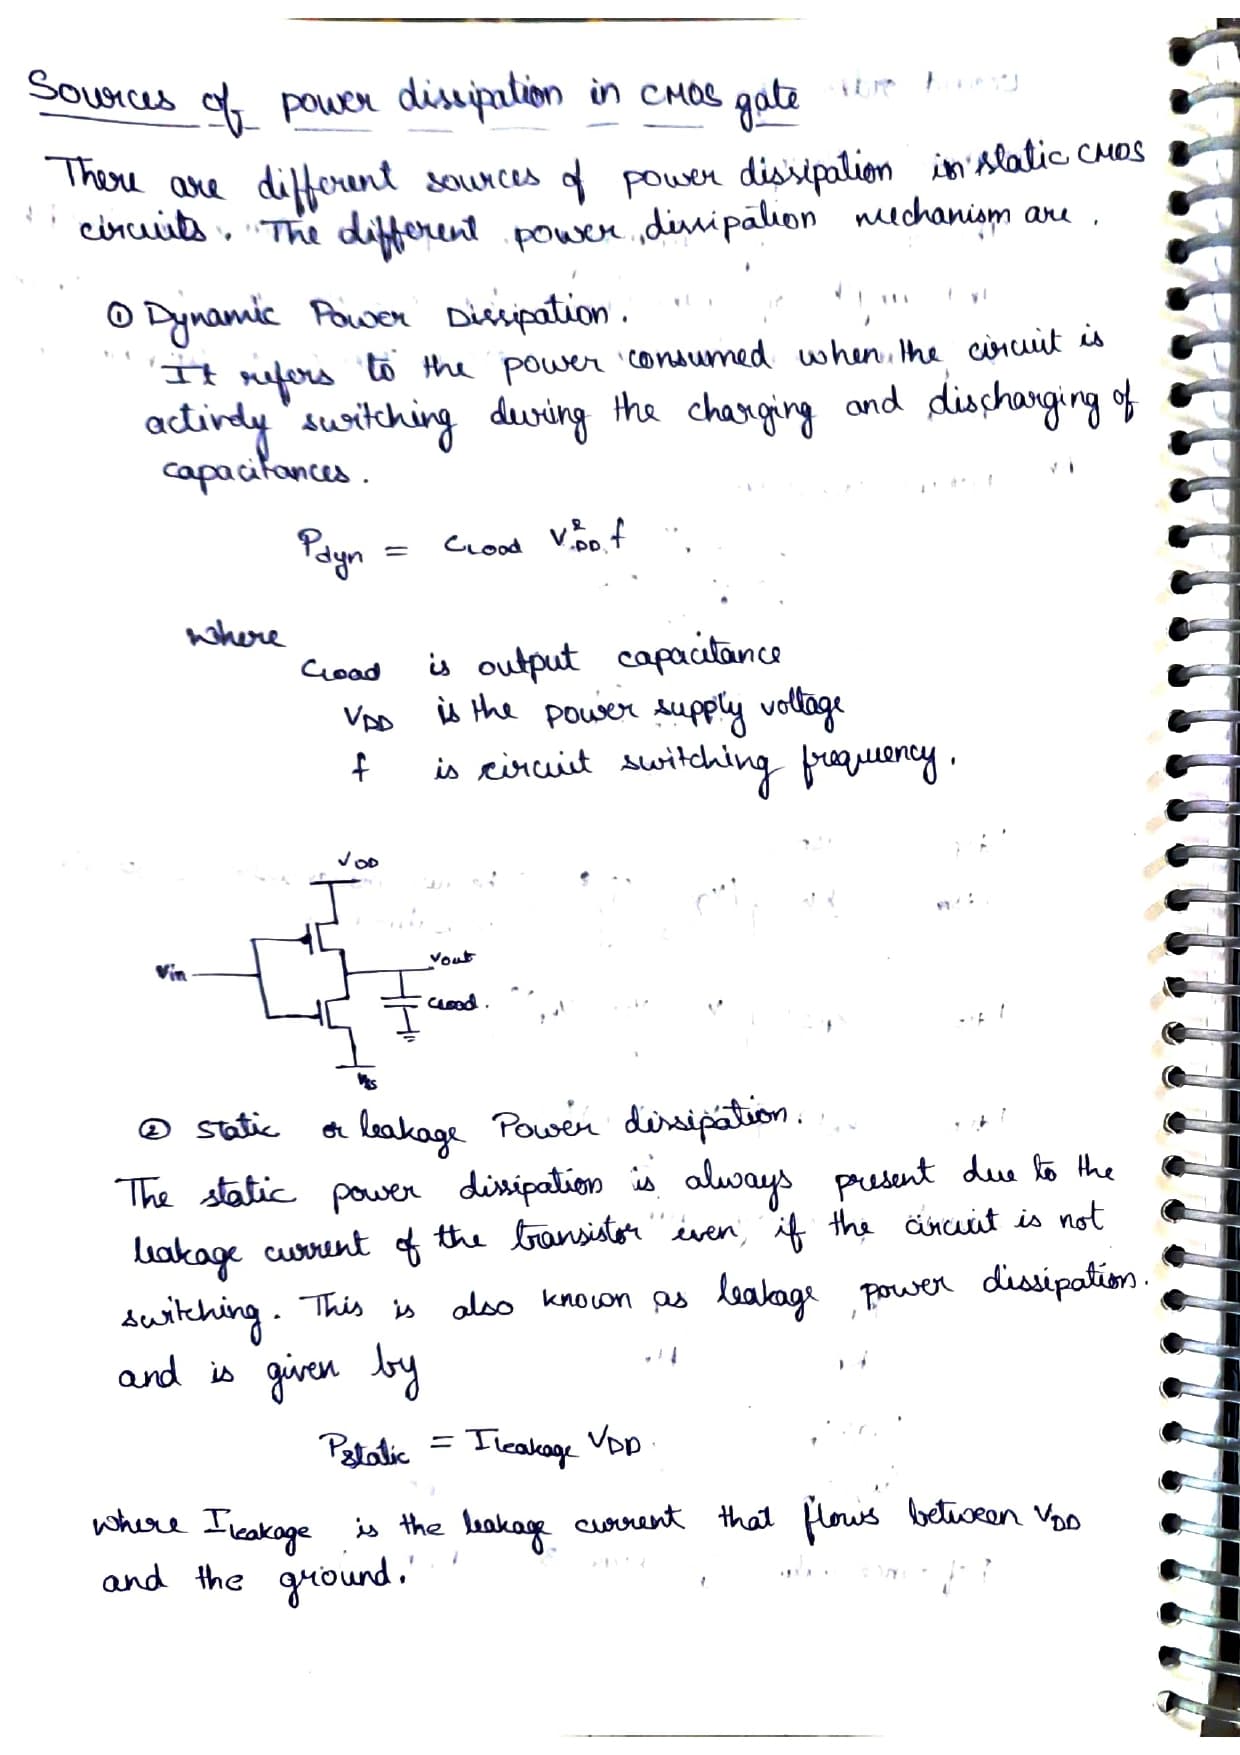 Sources of power dissipation in CMOS gate
There are different sources of power dissipation in static CMOS
circuits. The different power dissipation mechanism are.
① Dynamic Power Dissipation.
It refers to the power consumed when the circuit is
actively switching during the charging and discharging of
capacitances.
Pdyn = CLoad V²DD f
where
Cload is output capacitance
VDD is the power supply voltage
f is circuit switching frequency.
VDD
Vin
Vout
Cload.
Vss
② static or leakage Power dissipation.
The static power dissipation is always present due to the
leakage current of the transistor even, if the circuit is not
switching. This is also known as leakage power dissipation.
and is given by
Pstatic = Ileakage VDD.
where Ileakage is the leakage current that flows between VDD
and the ground.